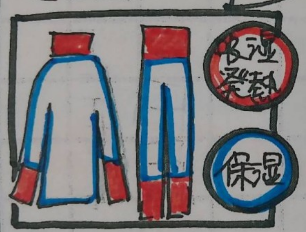 吸湿
発熱
保湿